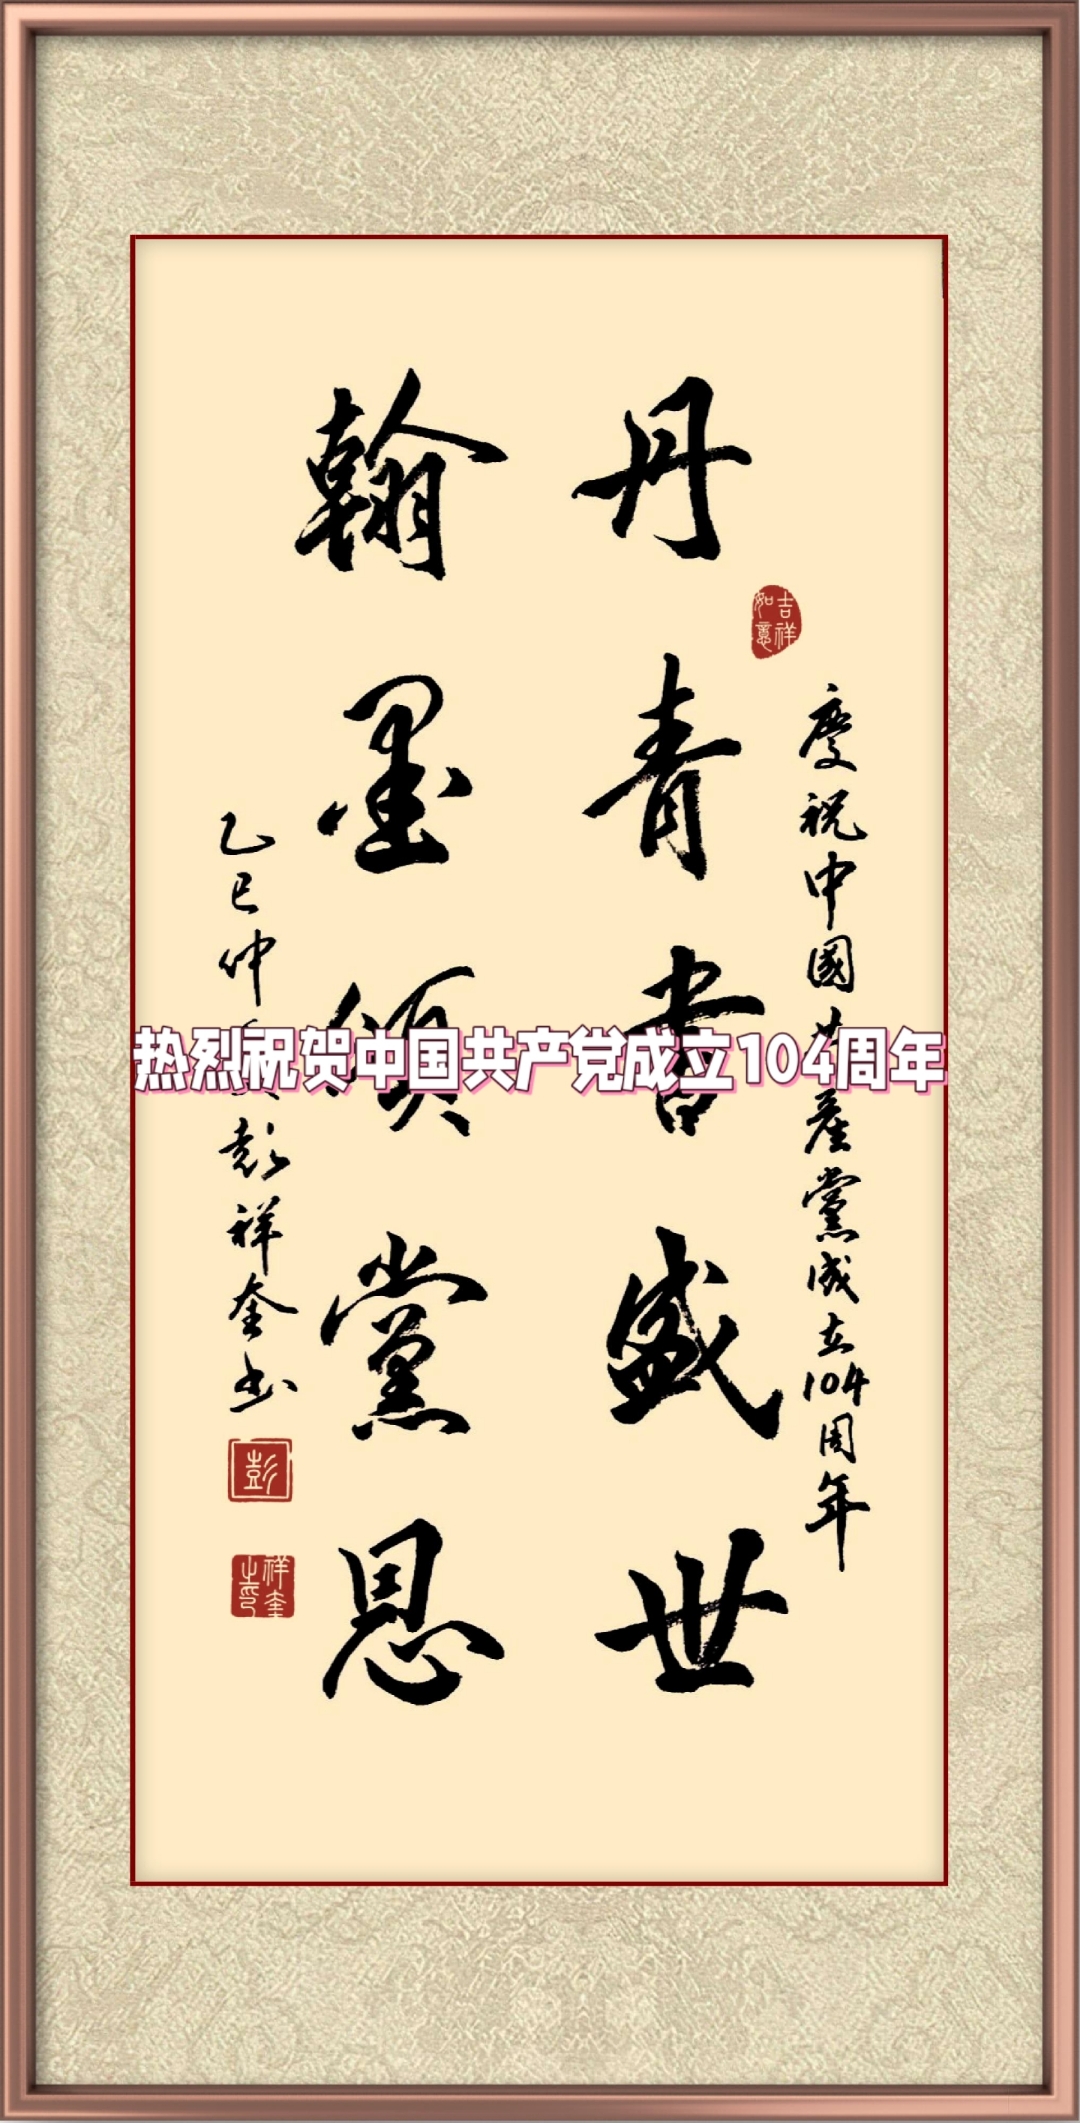 慶祝中國共產黨成立104周年
吉祥如意
丹青書盛世
翰墨頌黨恩
乙巳仲夏彭祥奎书
彭
祥奎之印
热烈祝贺中国共产党成立104周年